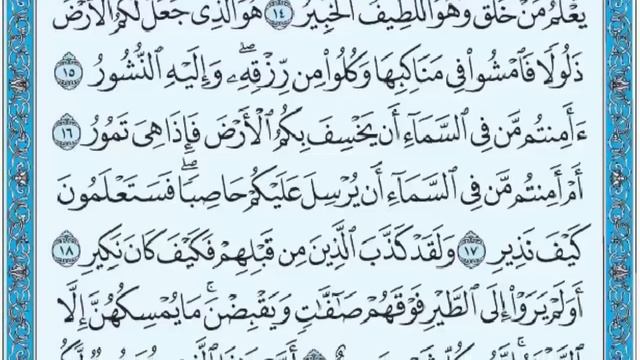 يَعْلَمُ مَنْ خَلَقَ وَهُوَ اللَّطِيفُ الْخَبِيرُ ١٤ هُوَ الَّذِي جَعَلَ لَكُمُ الْأَرْضَ
ذَلُولًا فَامْشُوا فِي مَنَاكِبِهَا وَكُلُوا مِن رِّزْقِهِۦ ۖ وَإِلَيْهِ النُّشُورُ ١٥
ءَأَمِنتُم مَّن فِي السَّمَآءِ أَن يَخْسِفَ بِكُمُ الْأَرْضَ فَإِذَا هِيَ تَمُورُ ١٦
أَمْ أَمِنتُم مَّن فِي السَّمَآءِ أَن يُرْسِلَ عَلَيْكُمْ حَاصِبًا ۖ فَسَتَعْلَمُونَ
كَيْفَ نَذِيرِ ١٧ وَلَقَدْ كَذَّبَ الَّذِينَ مِن قَبْلِهِمْ فَكَيْفَ كَانَ نَكِيرِ ١٨
أَوَلَمْ يَرَوْا إِلَى الطَّيْرِ فَوْقَهُمْ صَٰٓفَّٰتٍ وَيَقْبِضْنَ ۚ مَا يُمْسِكُهُنَّ إِلَّا